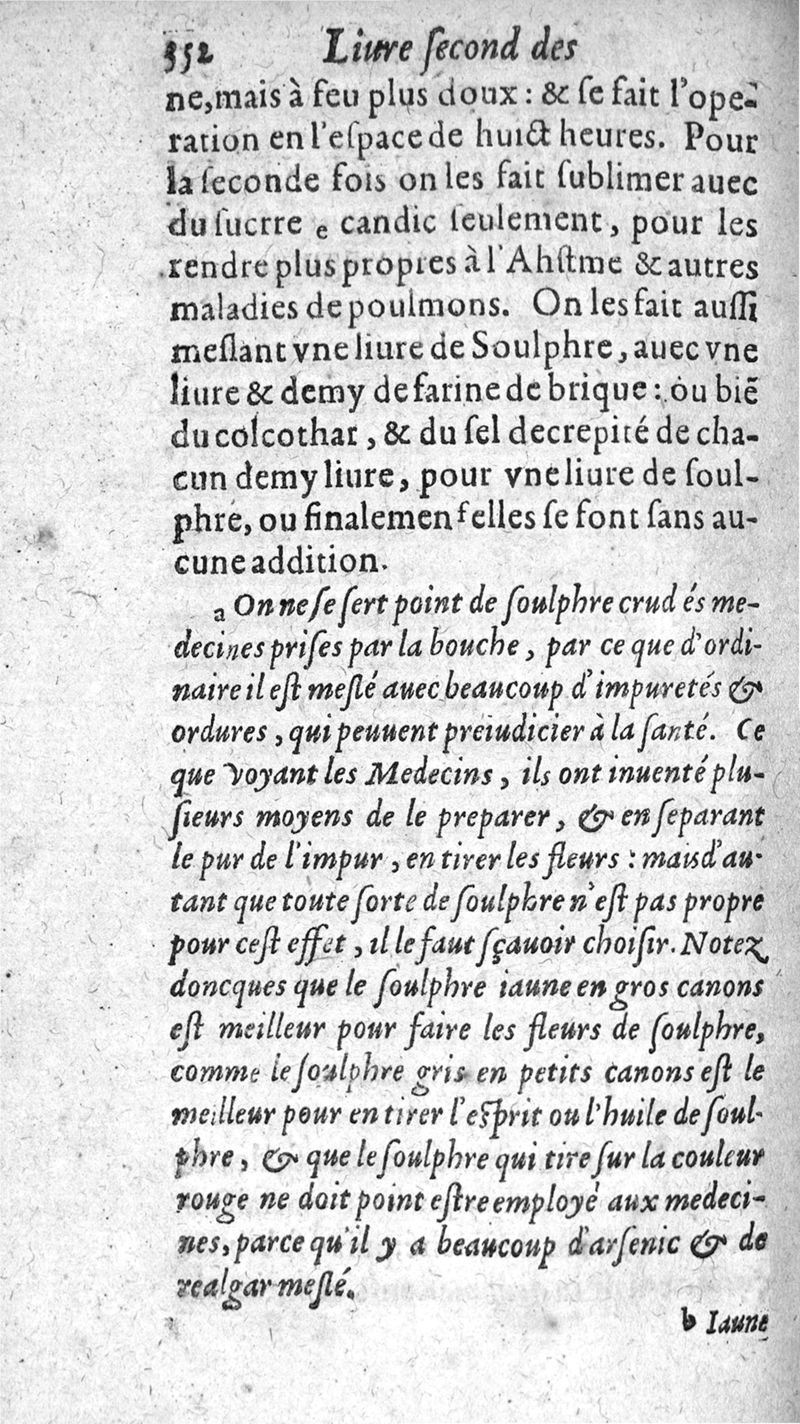 352 Liure ſecond des
ne, mais à feu plus doux: & ſe fait l'ope-
ration en l'eſpace de huict heures. Pour
la ſeconde fois on les fait ſublimer auec
du ſucrre e candic ſeulement, pour les
rendre plus propres à l'Ahſtme & autres
maladies de poulmons. On les fait auſſi
meſlant vne liure de Soulphre, auec vne
liure & demy de farine de brique: ou biẽ
du colcothar, & du ſel decrepité de cha-
cun demy liure, pour vne liure de ſoul-
phre, ou finalemen f elles ſe font ſans au-
cune addition.
a On ne ſe ſert point de ſoulphre crud és me-
decines priſes par la bouche, par ce que d'ordi-
naire il eſt meſlé auec beaucoup d'impuretés &
ordures, qui peuuent preiudicier à la ſanté. Ce
que voyant les Medecins, ils ont inuenté plu-
ſieurs moyens de le preparer, & en ſeparant
le pur de l'impur, en tirer les fleurs: mais d'au-
tant que toute ſorte de ſoulphre n'eſt pas propre
pour ceſt effet, il le faut ſçauoir choiſir. Notez
doncques que le ſoulphre iaune en gros canons
eſt meilleur pour faire les fleurs de ſoulphre,
comme le ſoulphre gris en petits canons eſt le
meilleur pour en tirer l'eſprit ou l'huile de ſoul-
phre, & que le ſoulphre qui tire ſur la couleur
rouge ne doit point eſtre employé aux medeci-
nes, parce qu'il y a beaucoup d'arſenic & de
realgar meſlé.
b Iaune